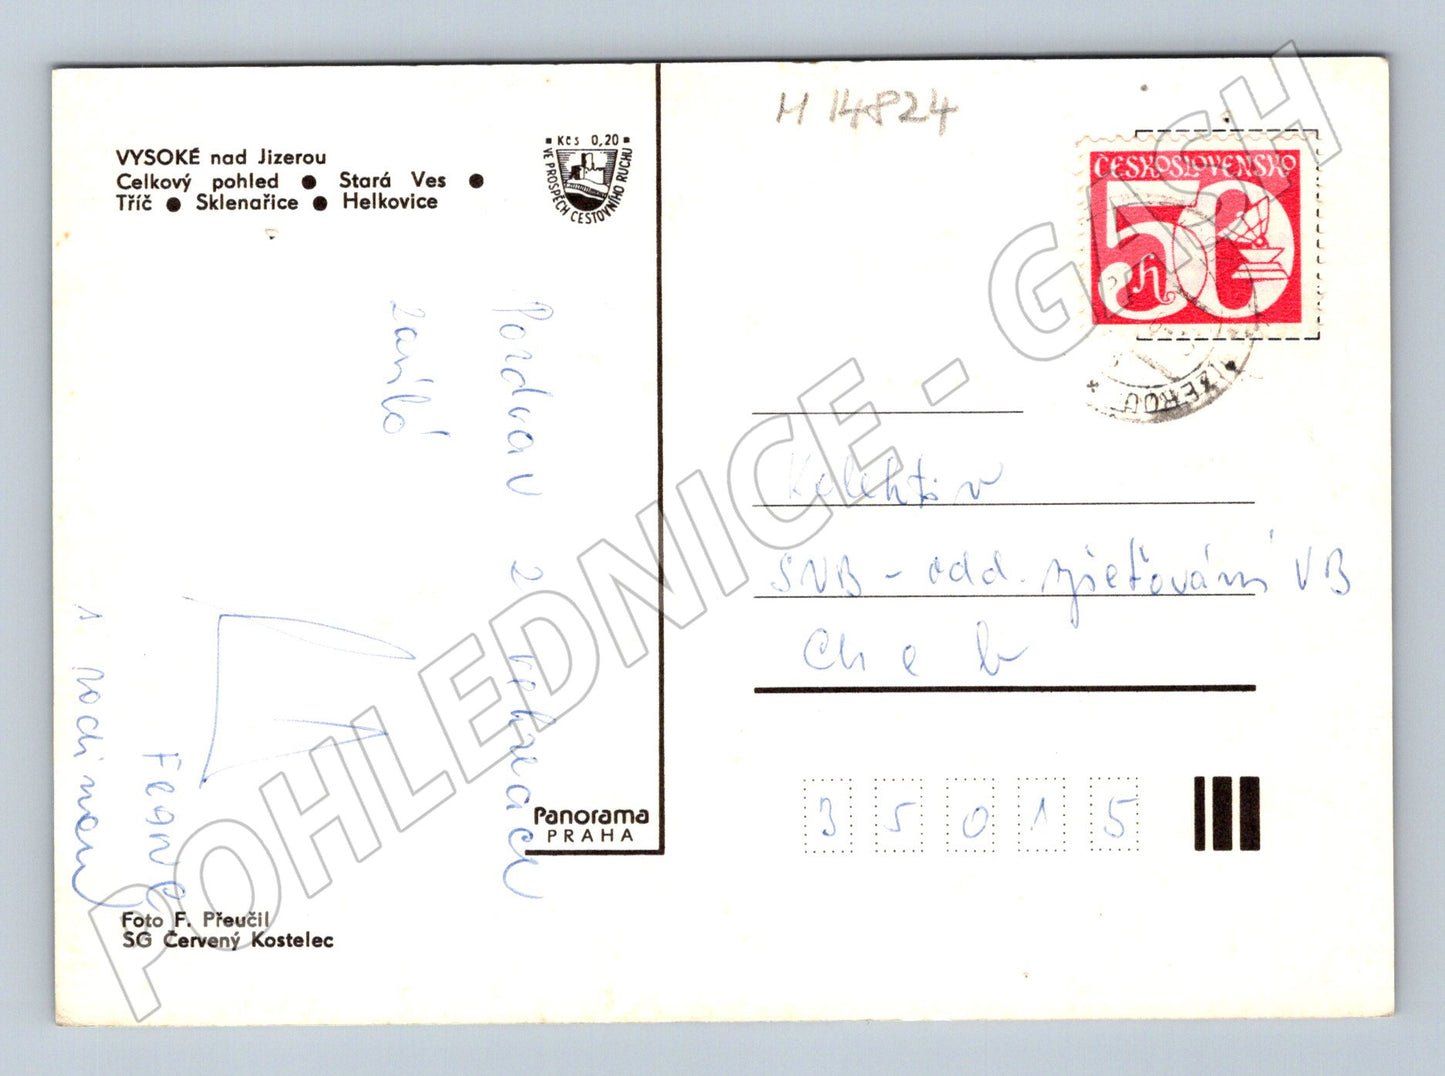 VYSOKÉ nad Jizerou
Celkový pohled ● Stará Ves ●
Tříč ● Sklenařice ● Helkovice
Kčs 0,20
VE PROSPĚCH CESTOVNÍHO RUCHU
Pozdrav z
1 rodinou
Panorama
PRAHA
Foto F. Přeučil
SG Červený Kostelec
M 14824
ČESKOSLOVENSKO
50 h
JIZEROU
Kolektiv
SNB - odd. vyšetřování VB
Cheb
35015
POHLEDNICE - GASH